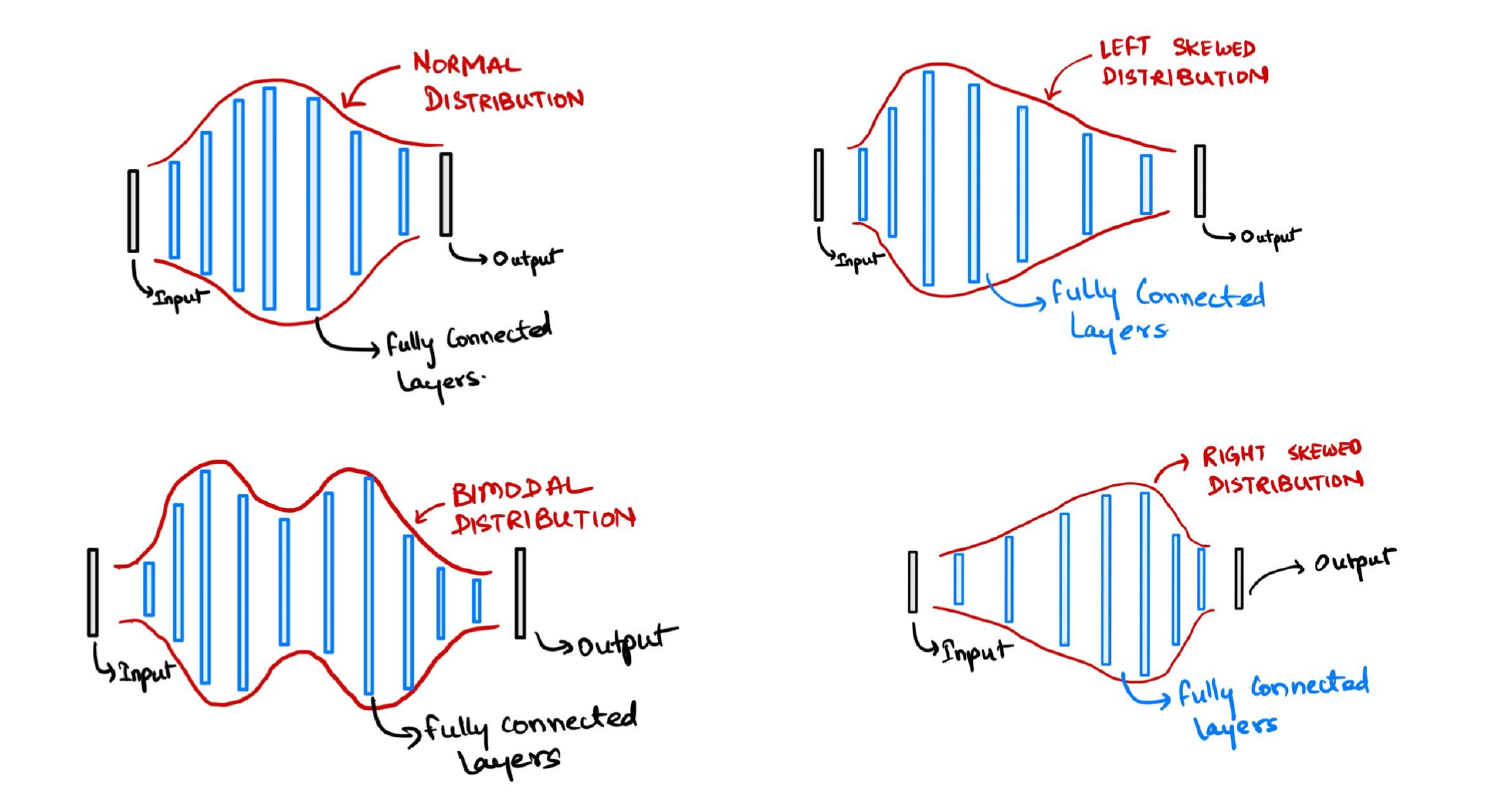 NORMAL
DISTRIBUTION
Input
Output
fully connected
Layers.
LEFT SKEWED
DISTRIBUTION
Input
Output
fully connected
Layers
BIMODAL
DISTRIBUTION
Input
Output
fully connected
Layers
RIGHT SKEWED
DISTRIBUTION
Input
Output
fully connected
Layers